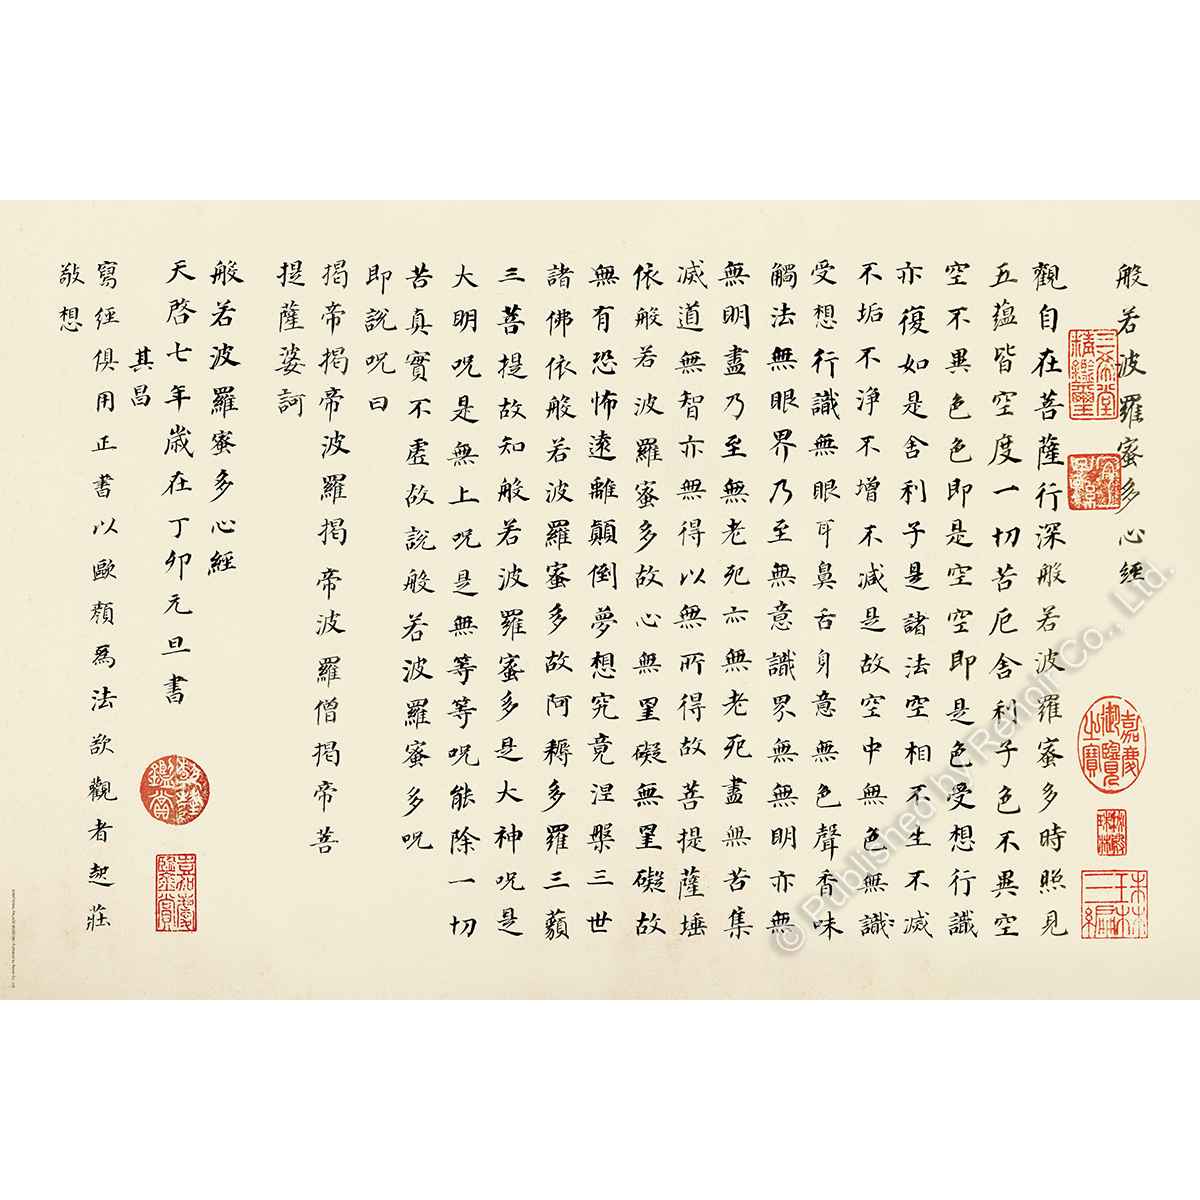 般若波羅蜜多心經
觀自在菩薩行深般若波羅蜜多時照見
五蘊皆空度一切苦厄舍利子色不異空
空不異色色即是空空即是色受想行識
亦復如是舍利子是諸法空相不生不滅
不垢不淨不增不減是故空中無色無識
受想行識無眼耳鼻舌身意無色聲香味
觸法無眼界乃至無意識界無無明亦無
無明盡乃至無老死亦無老死盡無苦集
滅道無智亦無得以無所得故菩提薩埵
依般若波羅蜜多故心無罣礙無罣礙故
無有恐怖遠離顛倒夢想究竟涅槃三世
諸佛依般若波羅蜜多故阿耨多羅三藐
三菩提故知般若波羅蜜多是大神呪是
大明呪是無上呪是無等等呪能除一切
苦真實不虛故說般若波羅蜜多呪
即說呪曰
揭帝揭帝波羅揭帝波羅僧揭帝菩
提薩婆訶
般若波羅蜜多心經
天啓七年歲在丁卯元旦書
其昌
寫經俱用正書以歐顏為法欲觀者起莊
敬想
三希堂精鑑璽
宜子孫
嘉慶御覽之寶
秘殿珠林
珠林三編
乾隆鑑賞
嘉慶鑑賞
© Published by Renoir Co., Ltd.